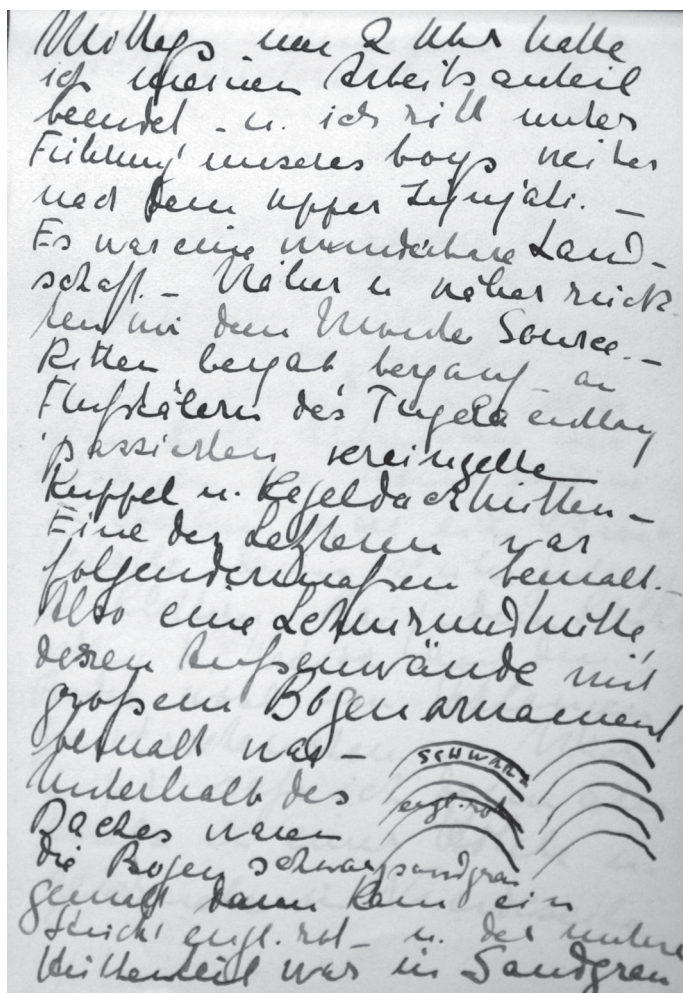 Mittags um 2 Uhr hatte
ich meinen Arbeitsanteil
beendet - u. ich ritt unter
Führung unseres boys weiter
nach dem upper
Es war eine wunderbare Land-
schaft. - Näher u näher rück-
ten wir dem Source. -
Ritten bergab bergauf - an
Flußtälern des Tugela entlang
passierten vereinzelte
Kuppel u. Kegeldachhütten -
Eine der Letzteren war
folgendermaßen bemalt. -
Also eine Lehmrundhütte,
deren Außenwände mit
großem Bogenornament
bemalt war -
SCHWARZ
engl. rot
Unterhalb des
Daches waren
die Bogen schwarzsandgrau
gemalt dann kam ein
Strich engl. rot - u. der untere
Hüttenteil war in Sandgrau